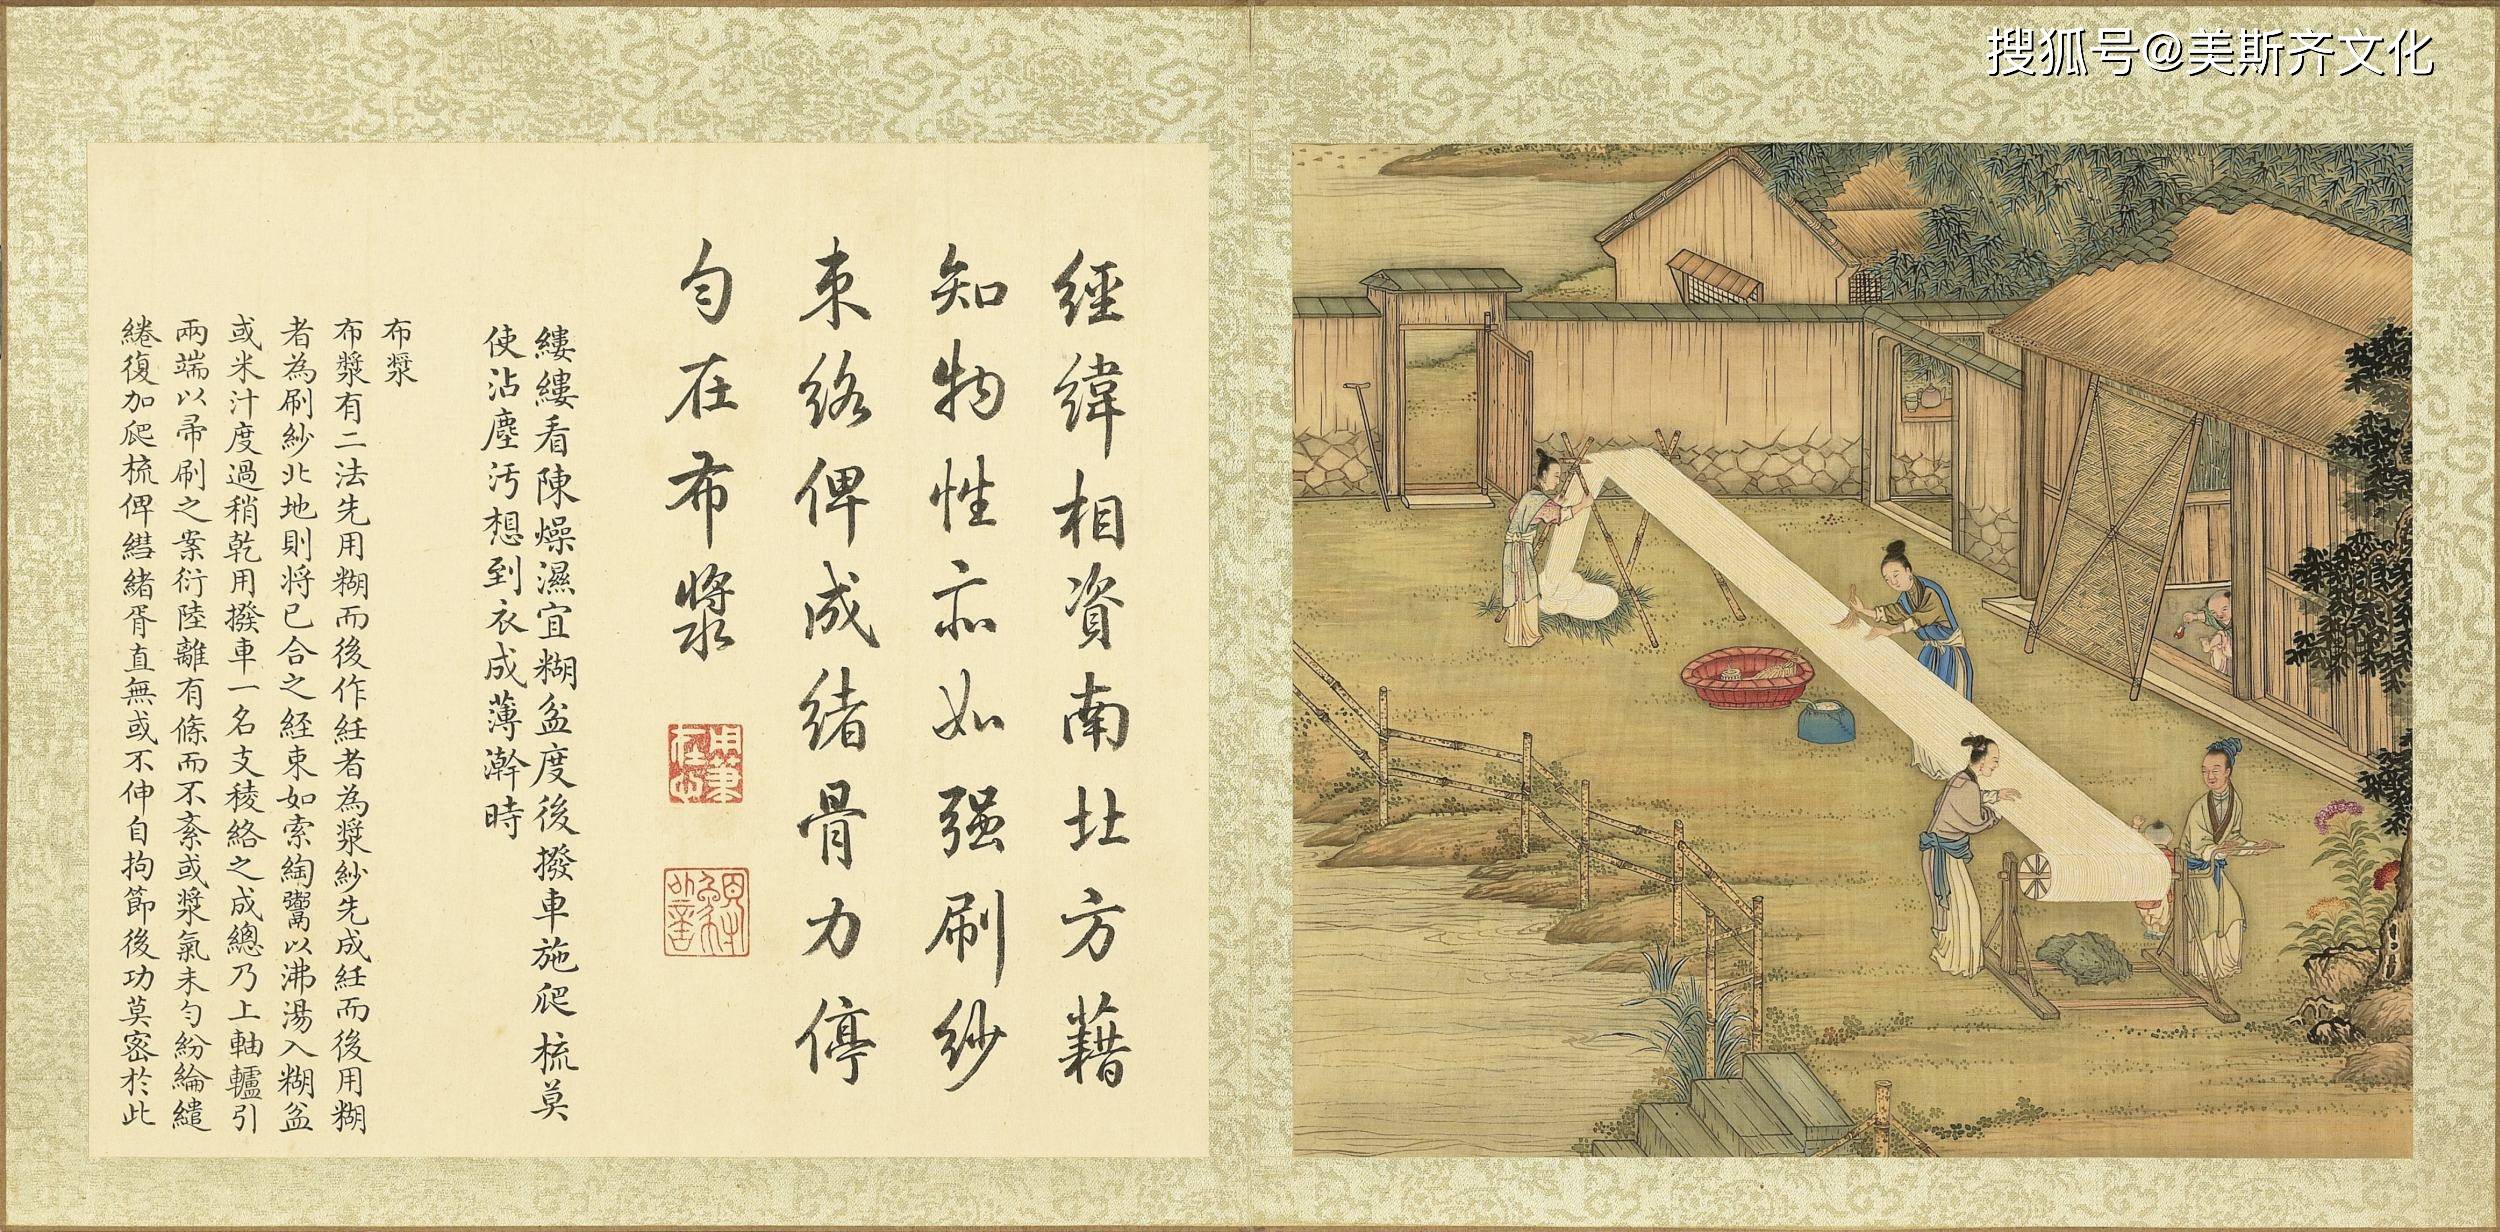 搜狐号@美斯齐文化
經緯相資南北方藉
知物性亦如强刷紗
束絡俾成緒骨力停
勻在布漿
縷縷看陳燥濕宜糊盆度後撥車施爬梳莫
使沾塵汚想到衣成薄澣時
布漿
布漿有二法先用糊而後作絍者為漿紗先成絍而後用糊
者為刷紗北地則将已合之経束如索綯鬻以沸湯入糊盆
或米汁度過稍乾用撥車一名支稜絡之成總乃上軸轤引
兩端以帚刷之案衍陸離有條而不紊或漿氣未勻紛綸繾
綣復加爬梳俾纇緒胥直無或不伸自拘節後功莫密於此